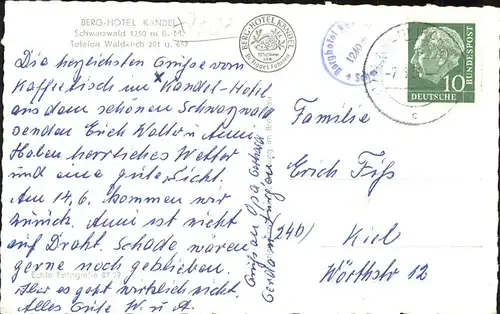 BERG-HOTEL KANDEL
Schwarzwald 1250 m ü. M.
Telefon Waldkirch 201 u. 647
BERG-HOTEL KANDEL
Berghotel Kandel
DEUTSCHE
BUNDESPOST
10
Die herzlichsten Grüße vom
Kaffeetisch im Kandel-Hotel
aus dem schönen Schwarzwald
senden Erich Walter u. Anni.
Haben herrliches Wetter
und eine gute Sicht.
Am 14.6. kommen wir
zurück. Anni ist nicht
auf Draht. Schade wären
gerne noch geblieben.
Aber es geht wirklich nicht.
Alles Gute W. u. A.
Gruß an Opa Gerhard
Gerda
Familie
Erich Fiss
24b) Kiel
Wörthstr 12